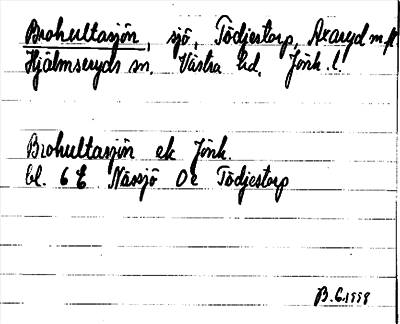 Brohultasjön, sjö, Tödjestorp, Axaryd m.fl.
Hjälmseryds sn. Västra hd. Jönk. l.
Brohultasjön ek Jönk.
bl. 6 E Nässjö 0e Tödjestorp
B.G. 1998